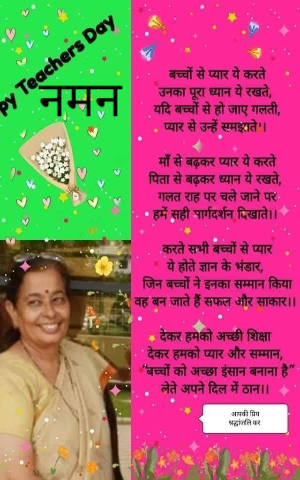 py Teachers Day
नमन
बच्चों से प्यार ये करते
उनका पूरा ध्यान ये रखते,
यदि बच्चों से हो जाए गलती,
प्यार से उन्हें समझाते।।
माँ से बढ़कर प्यार ये करते
पिता से बढ़कर ध्यान ये रखते,
गलत राह पर चले जाने पर
हमें सही मार्गदर्शन दिखाते।।
करते सभी बच्चों से प्यार
ये होते ज्ञान के भंडार,
जिन बच्चों ने इनका सम्मान किया
वह बन जाते हैं सफल और साकार।।
देकर हमको अच्छी शिक्षा
देकर हमको प्यार और सम्मान,
"बच्चों को अच्छा इंसान बनाना है"
लेते अपने दिल में ठान।।
आपकी प्रिय
श्रद्धांजलि कर